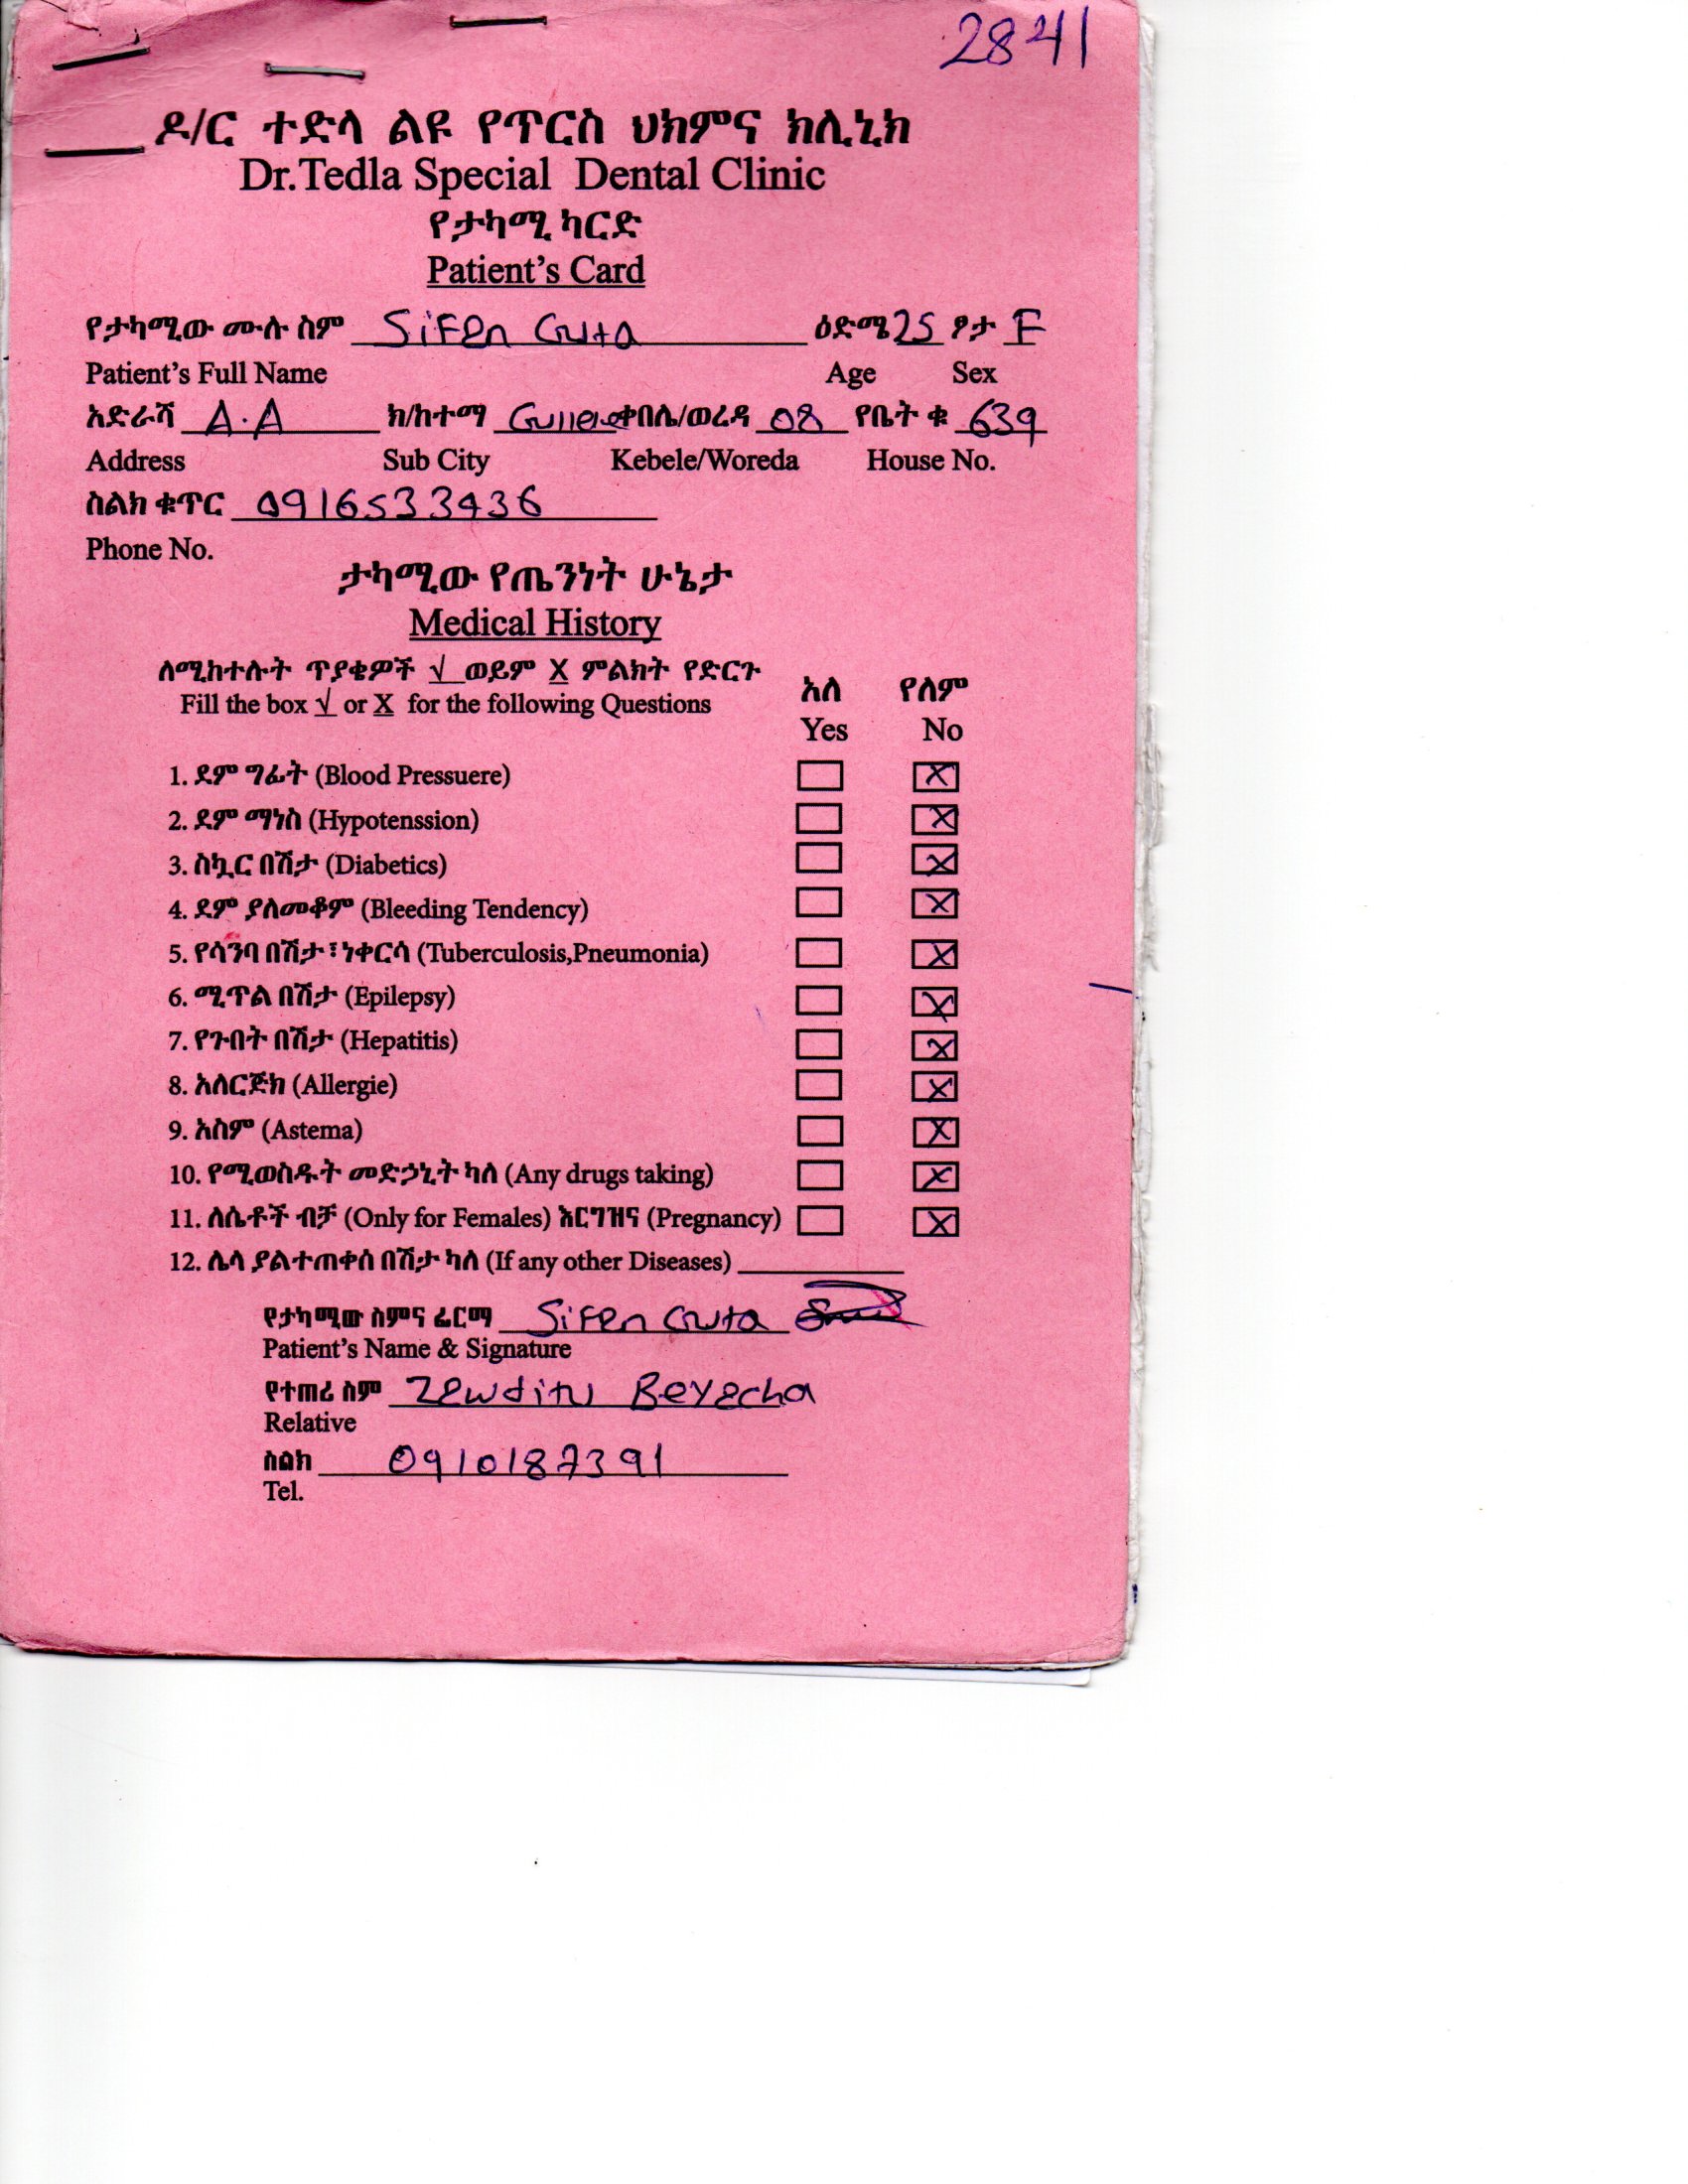 2841
ዶ/ር ተድላ ልዩ የጥርስ ህክምና ክሊኒክ
Dr.Tedla Special Dental Clinic
የታካሚ ካርድ
Patient's Card
የታካሚው ሙሉ ስም Sifen Guta ዕድሜ 25 ፆታ F
Patient's Full Name Age Sex
አድራሻ A.A ክ/ከተማ Gullele ቀበሌ/ወረዳ 08 የቤት ቁ 639
Address Sub City Kebele/Woreda House No.
ስልክ ቁጥር 0916533436
Phone No.
ታካሚው የጤንነት ሁኔታ
Medical History
ለሚከተሉት ጥያቄዎች √ ወይም X ምልክት የድርጉ
Fill the box √ or X for the following Questions
አለ የለም
Yes No
1. ደም ግፊት (Blood Pressuere) X
2. ደም ማነስ (Hypotenssion) X
3. ስኳር በሽታ (Diabetics) X
4. ደም ያለመቆም (Bleeding Tendency) X
5. የሳንባ በሽታ፣ነቀርሳ (Tuberculosis,Pneumonia) X
6. ሚጥል በሽታ (Epilepsy) X
7. የጉበት በሽታ (Hepatitis) X
8. አለርጅክ (Allergie) X
9. አስም (Astema) X
10. የሚወስዱት መድኃኒት ካለ (Any drugs taking) X
11. ለሴቶች ብቻ (Only for Females) እርግዝና (Pregnancy) X
12. ሌላ ያልተጠቀሰ በሽታ ካለ (If any other Diseases)
የታካሚው ስምና ፊርማ Sifen Guta
Patient's Name & Signature
የተጠሪ ስም Zewditu Beyecha
Relative
ስልክ 0910187391
Tel.